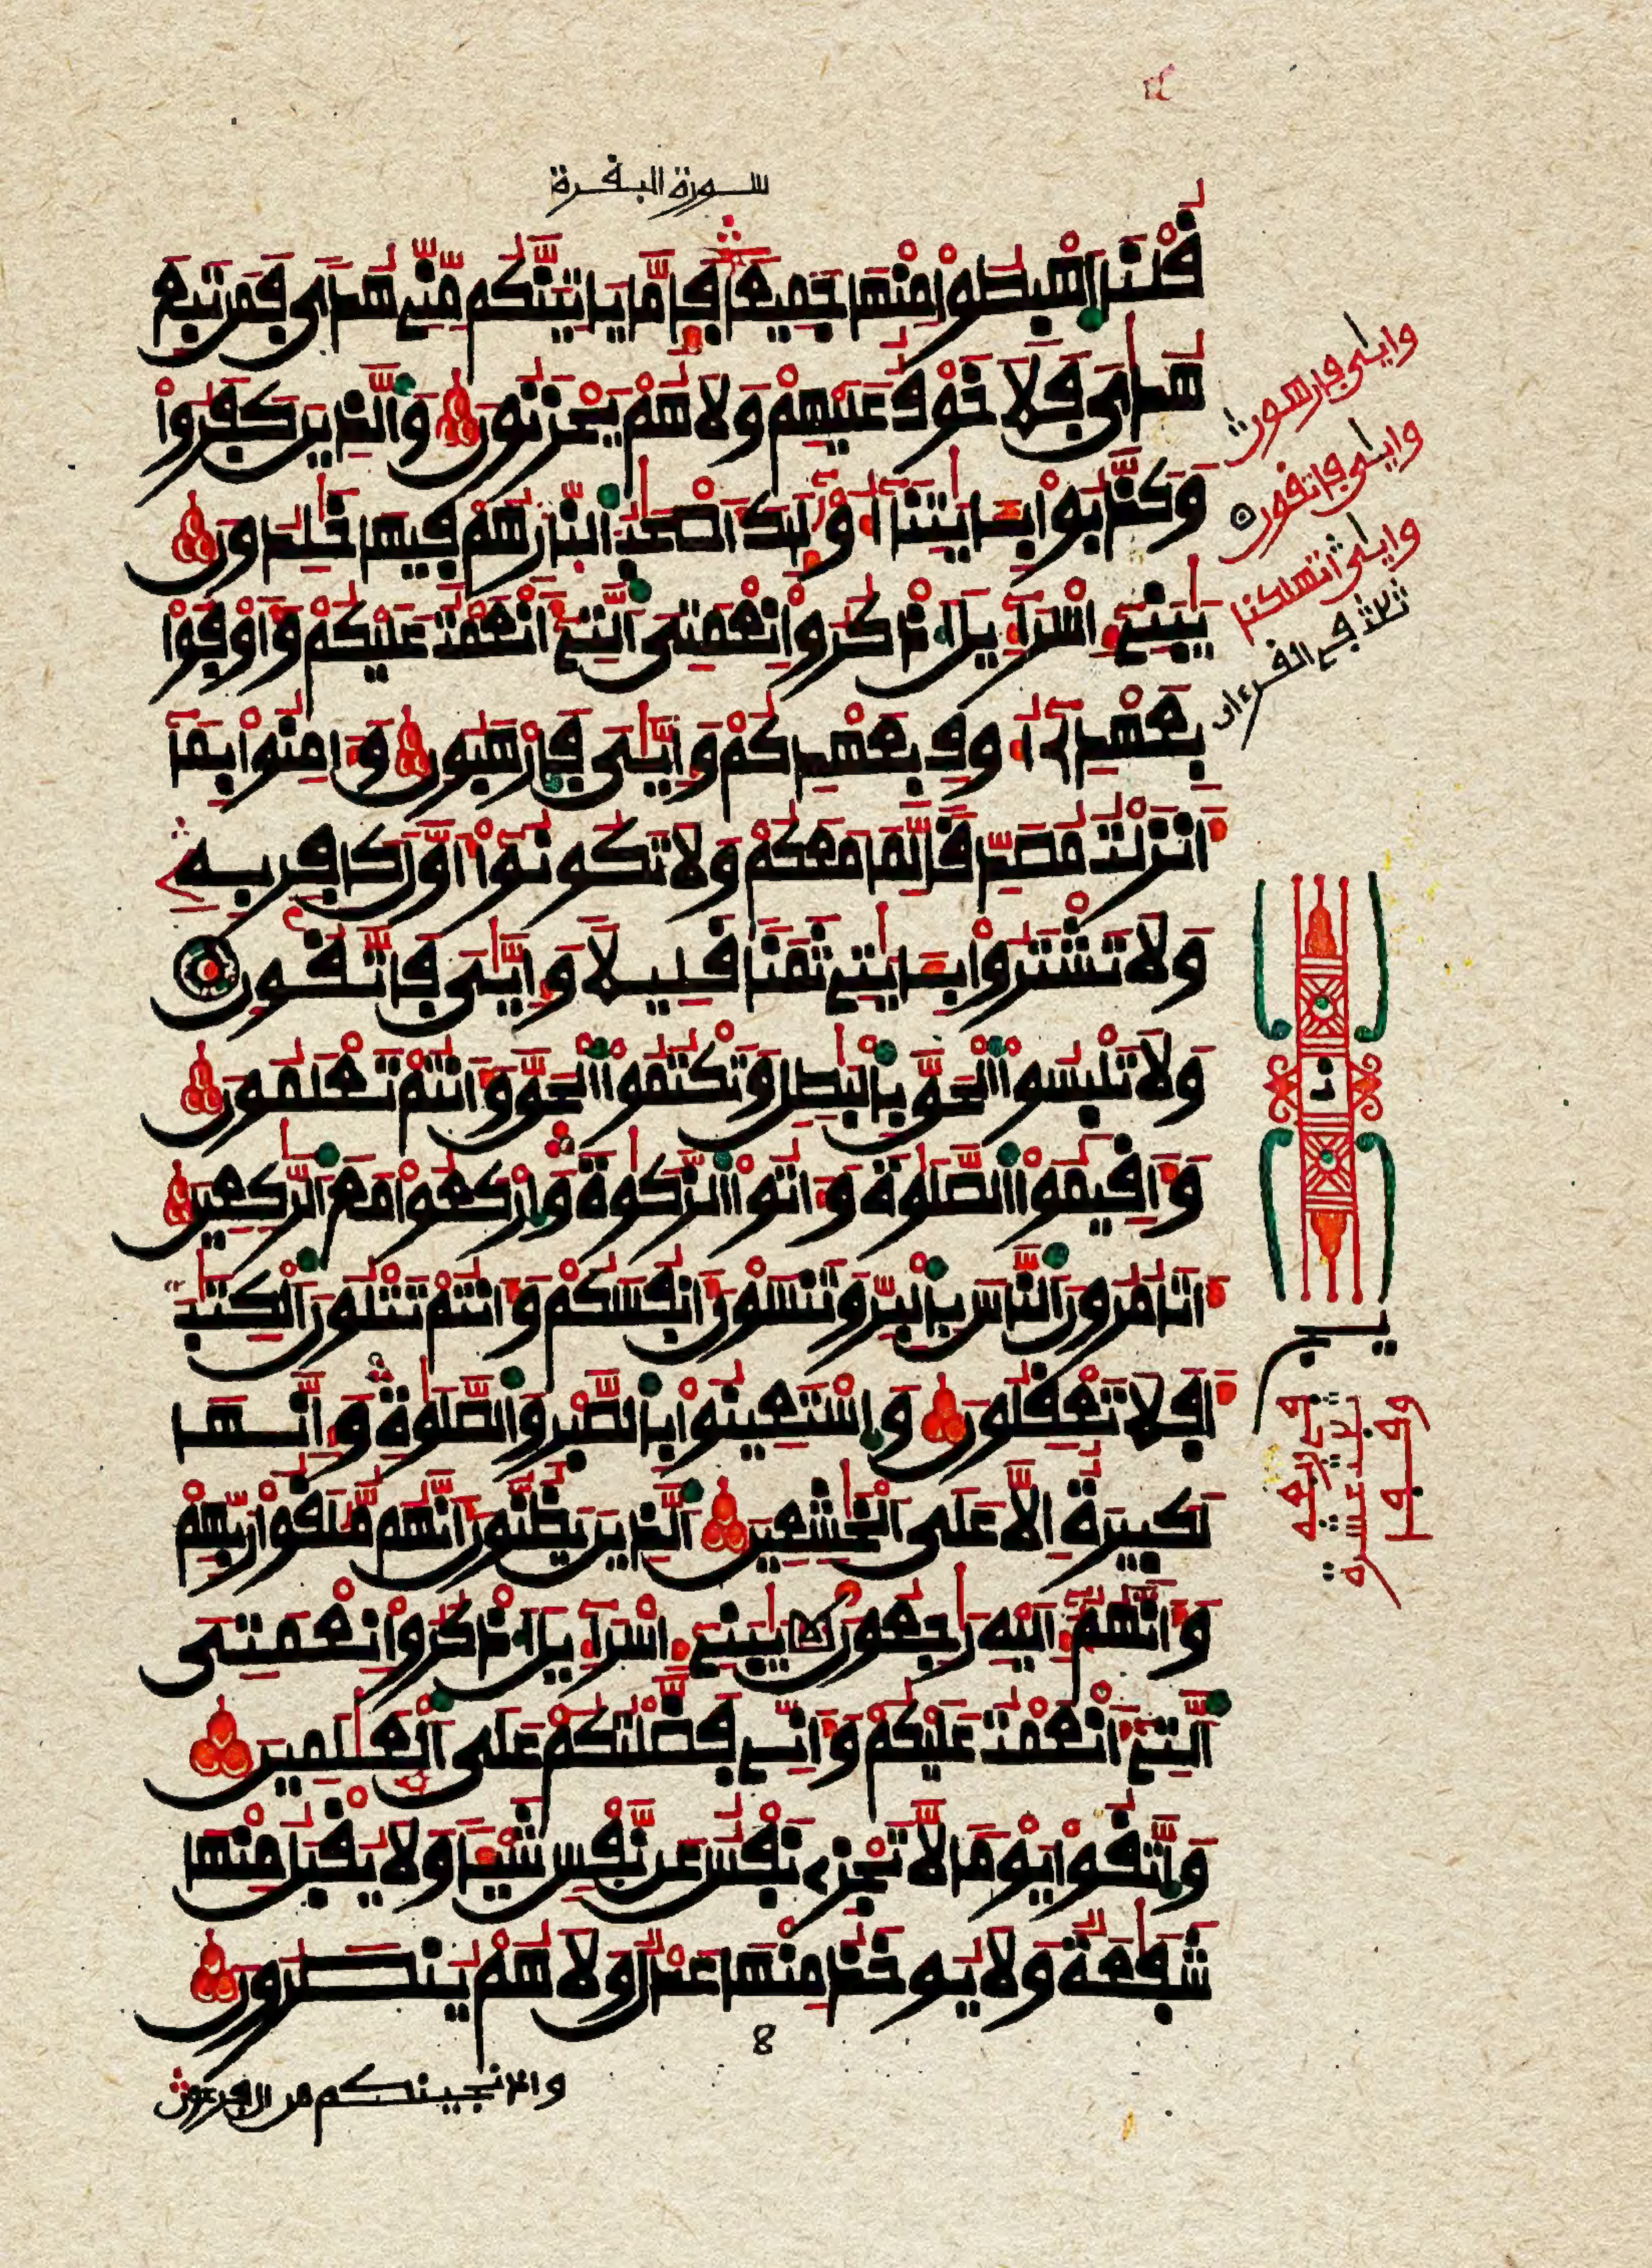 سورة البقرة
قُلْنَا اَهْبِطُواْ مِنْهَا جَمِيعاً فَإِمَّا يَاتِيَنَّكُم مِّنِّے هُدىً فَمَن تَبِعَ
هُدَايَ فَلَا خَوْفٌ عَلَيْهِمْ وَلَا هُمْ يَحْزَنُونَ وَالَّذِينَ كَفَرُواْ
وَكَذَّبُواْ بِـَٔايَٰتِنَا أُوْلَٰٓئِكَ أَصْحَٰبُ النّ۪ارِ هُمْ فِيهَا خَٰلِدُونَ
يَٰبَنِےٓ إِسْرَآءِيلَ اَذْكُرُواْ نِعْمَتِيَ اَلتِےٓ أَنْعَمْتُ عَلَيْكُمْ وَأَوْفُواْ
بِعَهْدِےٓ أُوفِ بِعَهْدِكُمْ وَإِيَّٰيَ فَارْهَبُونِ وَءَامِنُواْ بِمَآ
أَنزَلْتُ مُصَدِّقاً لِّمَا مَعَكُمْ وَلَا تَكُونُوٓاْ أَوَّلَ كَافِرٍ بِهِۦ
وَلَا تَشْتَرُواْ بِـَٔايَٰتِے ثَمَناً قَلِيلًا وَإِيَّٰيَ فَاتَّقُونِ
وَلَا تَلْبِسُواْ اَلْحَقَّ بِالْبَٰطِلِ وَتَكْتُمُواْ اَلْحَقَّ وَأَنتُمْ تَعْلَمُونَ
وَأَقِيمُواْ اَلصَّلَوٰةَ وَءَاتُواْ اَلزَّكَوٰةَ وَارْكَعُواْ مَعَ اَلرَّٰكِعِينَ
أَتَامُرُونَ اَلنَّاسَ بِالْبِرِّ وَتَنسَوْنَ أَنفُسَكُمْ وَأَنتُمْ تَتْلُونَ اَلْكِتَٰبَ
أَفَلَا تَعْقِلُونَ وَاسْتَعِينُواْ بِالصَّبْرِ وَالصَّلَوٰةِ وَإِنَّهَا
لَكَبِيرَةٌ إِلَّا عَلَى اَلْخَٰشِعِينَ اَلذِينَ يَظُنُّونَ أَنَّهُم مُّلَٰقُواْ رَبِّهِمْ
وَأَنَّهُمُۥٓ إِلَيْهِ رَٰجِعُونَ يَٰبَنِےٓ إِسْرَآءِيلَ اَذْكُرُواْ نِعْمَتِيَ
اَلتِےٓ أَنْعَمْتُ عَلَيْكُمْ وَأَنِّے فَضَّلْتُكُمْ عَلَى اَلْعَٰلَمِينَ
وَاتَّقُواْ يَوْماً لَّا تَجْزِے نَفْسٌ عَن نَّفْسٍ شَيْـٔاً وَلَا يُقْبَلُ مِنْهَا
شَفَٰعَةٌ وَلَا يُوخَذُ مِنْهَا عَدْلٌ وَلَا هُمْ يُنصَرُونَ
8
وإذ نجينكم من ال فرعون
وايـٰى فارهبون
وايـٰى فاتقون
وايـٰى اتهلكنا
ثلاث في القرءان